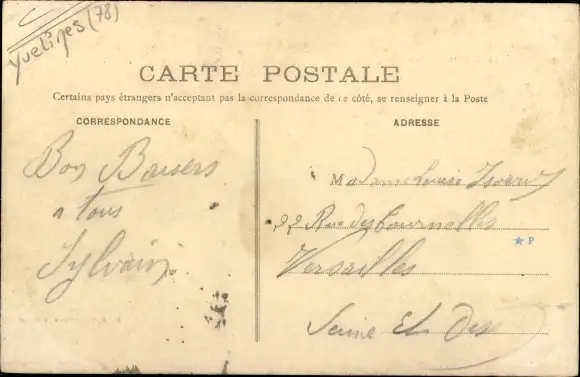 Yvelines (78)
CARTE POSTALE
Certains pays étrangers n'acceptant pas la correspondance de ce côté, se renseigner à la Poste
CORRESPONDANCE
ADRESSE
Bons Baisers
a tous
Sylvain.
Madame Louise
22 Rue des Tournelles
P
Versailles
Seine Et Oise